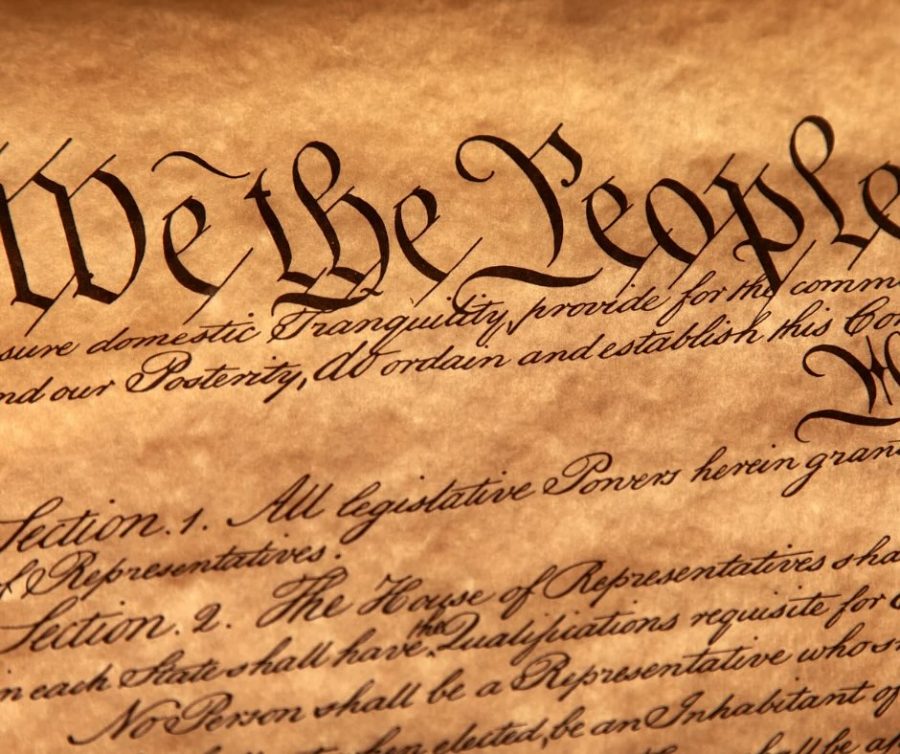 We the People
sure domestic Tranquility, provide for the comm
nd our Posterity, do ordain and establish this Con
Section. 1. All legislative Powers herein grant
of Representatives.
Section. 2. The House of Representatives sha
in each State shall have the Qualifications requisite for
No Person shall be a Representative who s
when elected, be an Inhabitant of